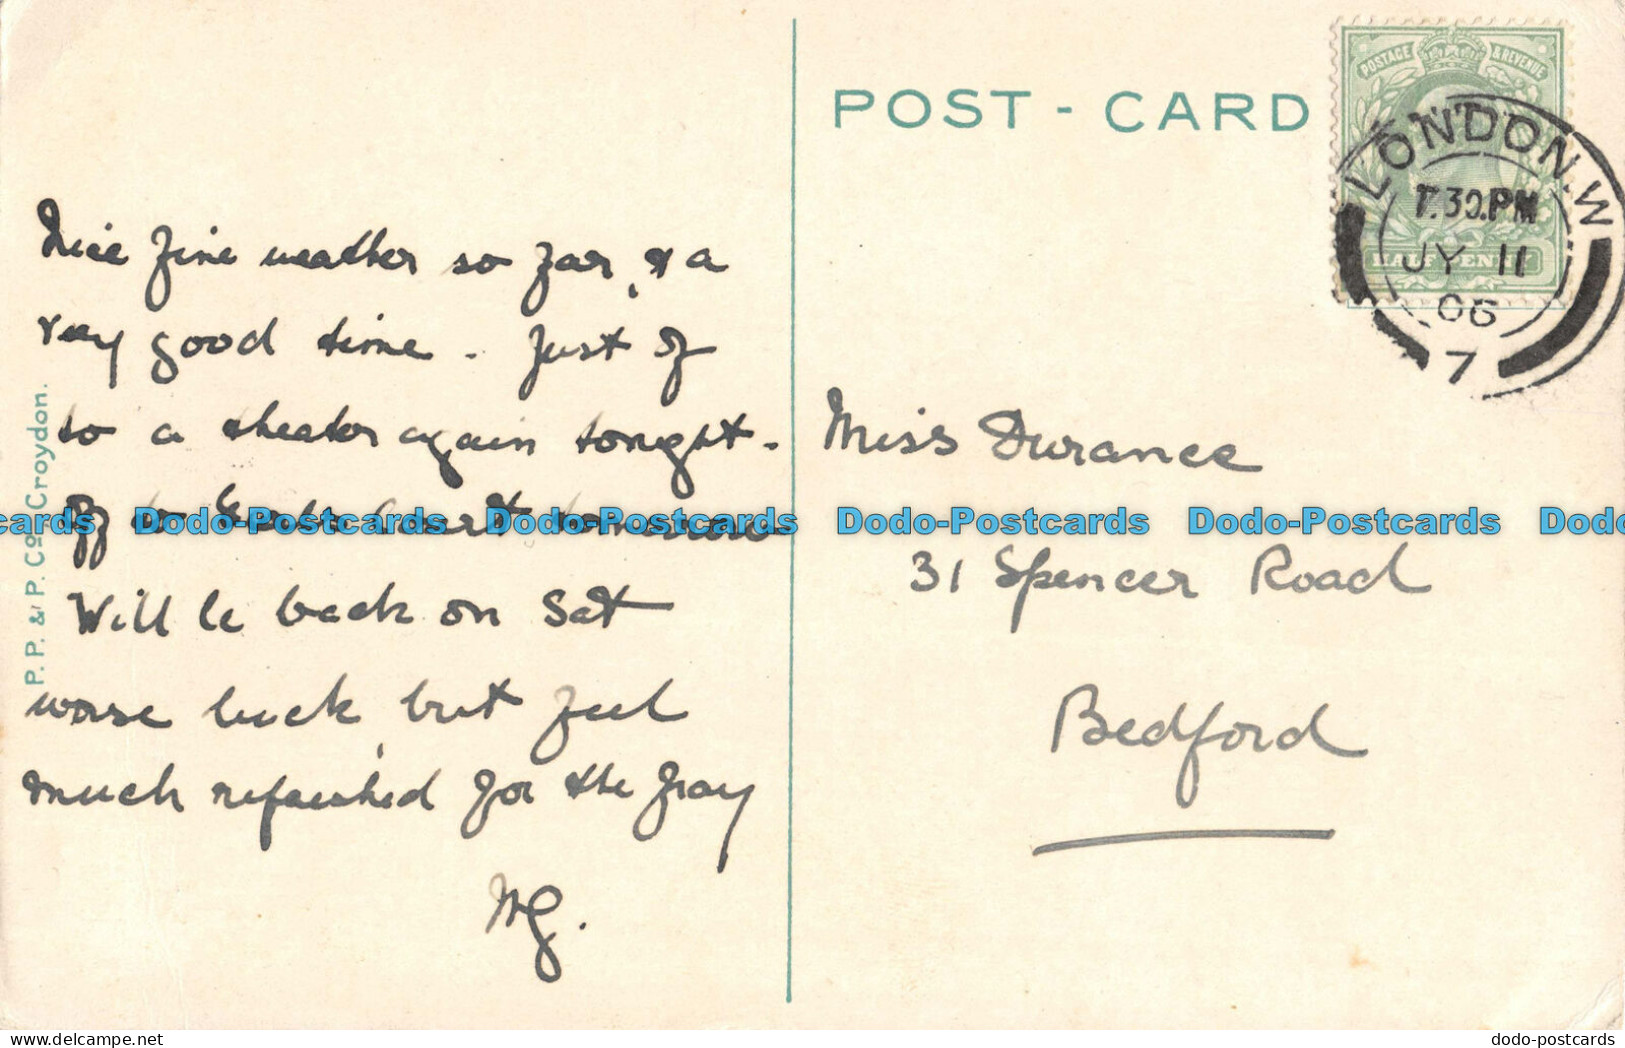 POST - CARD
POSTAGE & REVENUE
HALF PENNY
LONDON.W
7.30.PM
JY 11
06
7
Nice fine weather so far, & a
very good time. Just off
to a theater again tonight.
Off to Earls Court tomorrow
Will be back on Sat
worse luck, but feel
much refreshed for the fray
P.P. & P. Co. Croydon.
Miss Durance
31 Spencer Road
Bedford
Dodo-Postcards Dodo-Postcards Dodo-Postcards Dodo-Postcards
dodo-postcards
dodo-postcards.com